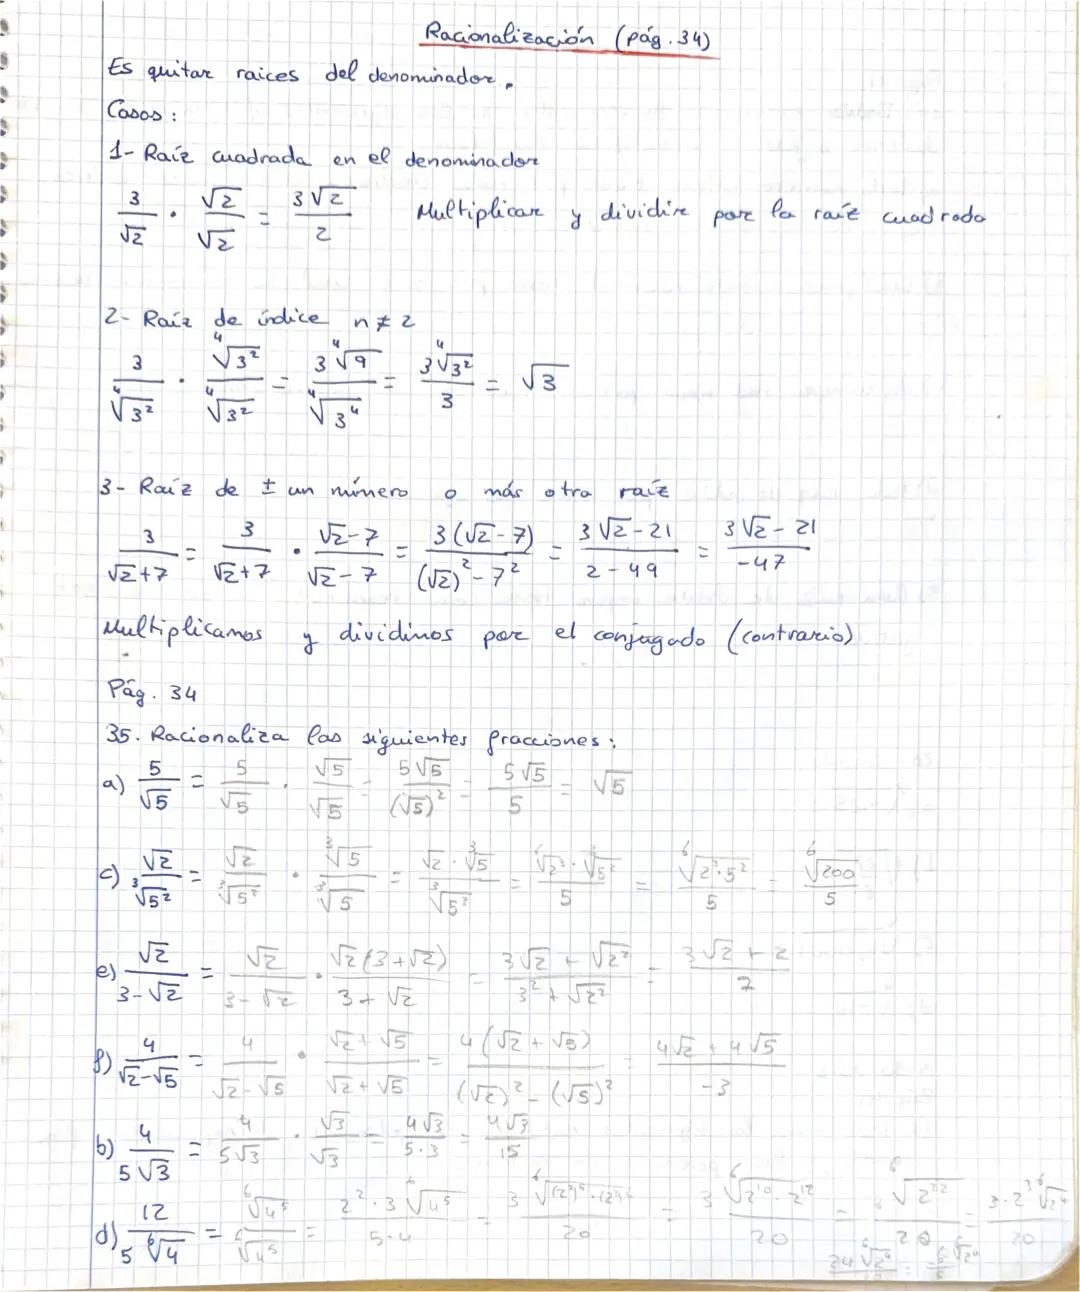 Racionalización (pág. 34)
Es quitar raices del denominador.
Casos:
1- Raíz cuadrada en el denominador
3/√2 · √2/√2 = 3√2/2 Multiplicar y dividir por la raíz cuadrada
2- Raíz de índice n ≠ 2
3/⁴√3² · ⁴√3²/⁴√3² = 3⁴√9/⁴√3⁴ = 3⁴√3²/3 = √3
3- Raíz de ± un número o más otra raíz
3/(√2+7) = 3/(√2+7) · (√2-7)/(√2-7) = 3(√2-7)/((√2)²-7²) = (3√2-21)/(2-49) = (3√2-21)/-47
Multiplicamos y dividimos por el conjugado (contrario)
Pág. 34
35. Racionaliza las siguientes fracciones:
a) 5/√5 = 5/√5 · √5/√5 = 5√5/(√5)² = 5√5/5 = √5
c) √2/³√5² = √2/³√5² · ³√5/³√5 = √2·³√5/³√5³ = ⁶√2³·⁶√5²/5 = ⁶√2³·5²/5 = ⁶√200/5
e) √2/(3-√2) = √2/(3-√2) · √2(3+√2)/(3+√2) = (3√2+√2²)/(3²+√2²) = (3√2+2)/7
f) 4/(√2-√5) = 4/(√2-√5) · (√2+√5)/(√2+√5) = 4(√2+√5)/((√2)²-(√5)²) = (4√2+4√5)/-3
b) 4/5√3 = 4/5√3 · √3/√3 = 4√3/5·3 = 4√3/15
d) 12/5⁶√4 = ⁶√4⁵/⁶√4⁵ = 2²·3⁶√4⁵/5·4 = 3/20 = 3⁶√2¹⁰·2¹²/20 = ⁶√2²²/20 = 3·2³⁶√2⁴/20
24⁶√2⁴ = 6/5 ⁶√2⁴